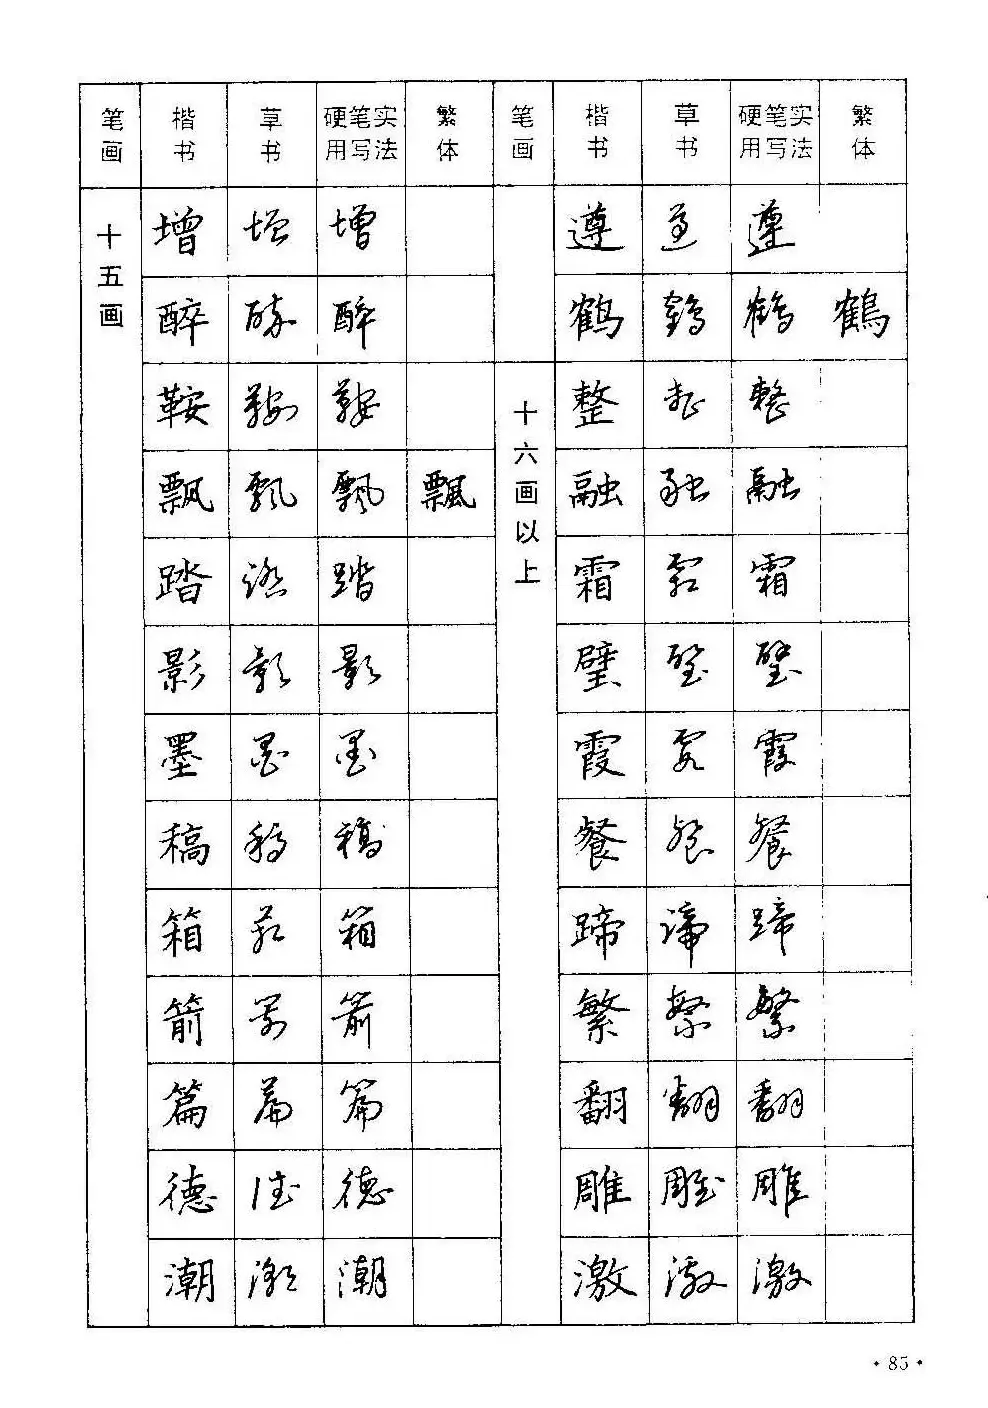 笔画 楷书 草书 硬笔实用写法 繁体 笔画 楷书 草书 硬笔实用写法 繁体
十五画 增 增 增 遵 遵 遵
醉 醉 醉 鹤 鹤 鹤 鶴
鞍 鞍 鞍 十六画以上 整 整 整
飘 飘 飘 飄 融 融 融
踏 踏 踏 霜 霜 霜
影 影 影 壁 壁 壁
墨 墨 墨 霞 霞 霞
稿 稿 稿 餐 餐 餐
箱 箱 箱 蹄 蹄 蹄
箭 箭 箭 繁 繁 繁
篇 篇 篇 翻 翻 翻
德 德 德 雕 雕 雕
潮 潮 潮 激 激 激
·85·